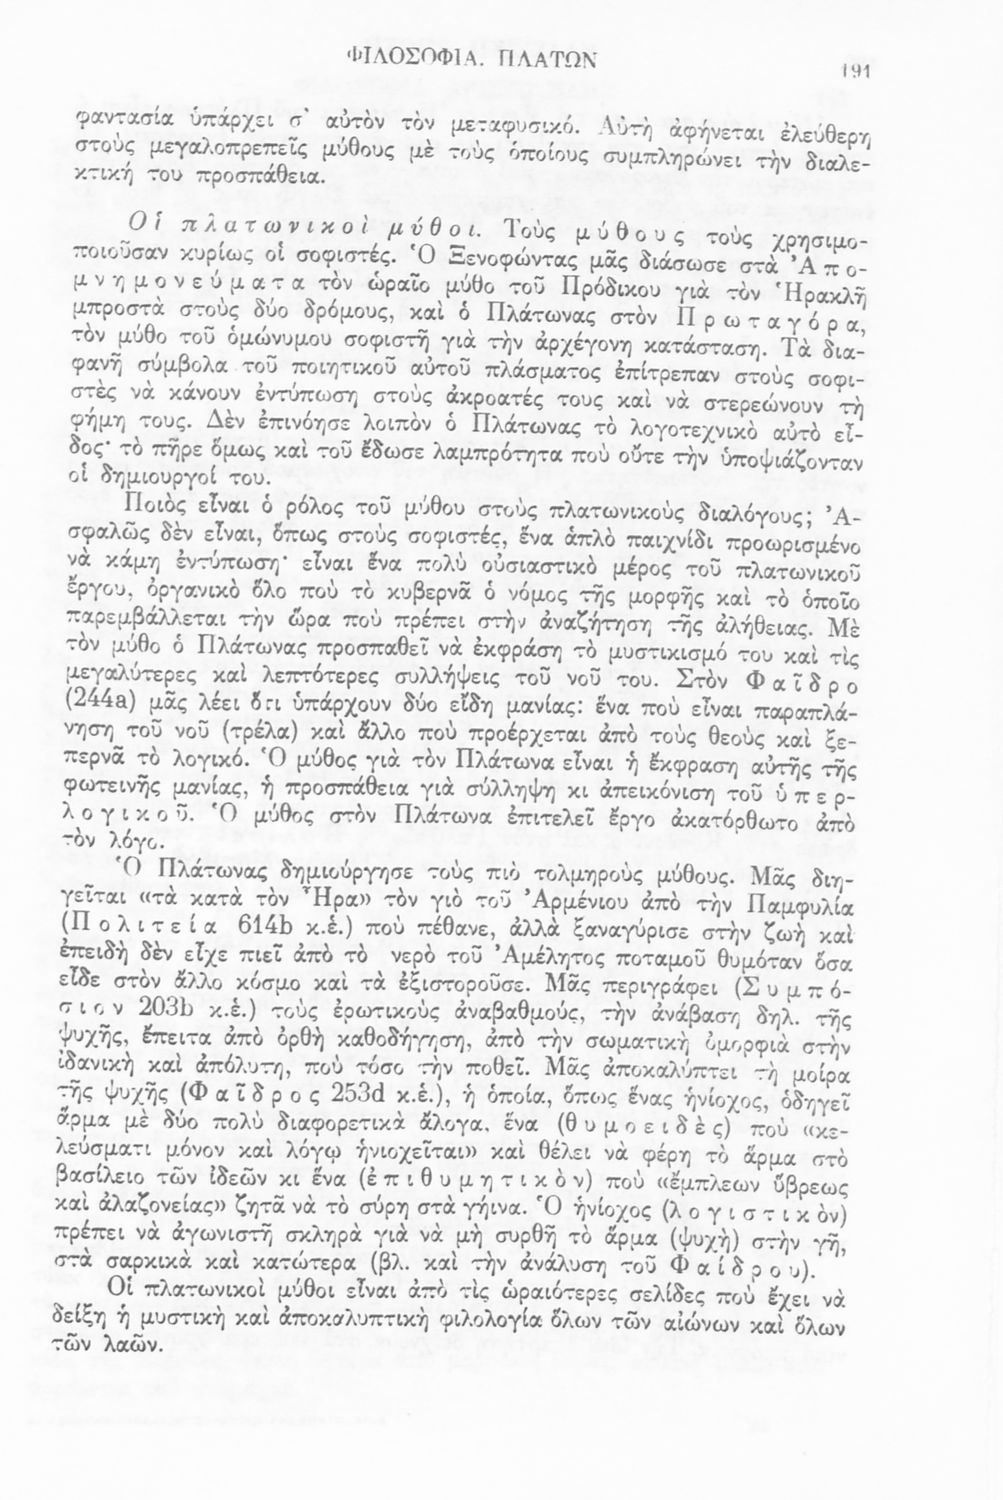 ΦΙΛΟΣΟΦΙΑ. ΠΛΑΤΩΝ
191
φαντασία ὑπάρχει σ' αὐτὸν τὸν μεταφυσικό. Αὐτὴ ἀφήνεται ἐλεύθερη
στοὺς μεγαλοπρεπεῖς μύθους μὲ τοὺς ὁποίους συμπληρώνει τὴν διαλε-
κτική του προσπάθεια.
Οἱ πλατωνικοὶ μύθοι. Τοὺς μύθους τοὺς χρησιμο-
ποιοῦσαν κυρίως οἱ σοφιστές. Ὁ Ξενοφώντας μᾶς διάσωσε στὰ Ἀπο-
μνημονεύματα τὸν ὡραῖο μύθο τοῦ Πρόδικου γιὰ τὸν Ἡρακλῆ
μπροστὰ στοὺς δύο δρόμους, καὶ ὁ Πλάτωνας στὸν Πρωταγόρα,
τὸν μύθο τοῦ ὁμώνυμου σοφιστῆ γιὰ τὴν ἀρχέγονη κατάσταση. Τὰ δια-
φανῆ σύμβολα τοῦ ποιητικοῦ αὐτοῦ πλάσματος ἐπίτρεπαν στοὺς σοφι-
στὲς νὰ κάνουν ἐντύπωση στοὺς ἀκροατές τους καὶ νὰ στερεώνουν τὴ
φήμη τους. Δὲν ἐπινόησε λοιπὸν ὁ Πλάτωνας τὸ λογοτεχνικὸ αὐτὸ εἶ-
δος· τὸ πῆρε ὅμως καὶ τοῦ ἔδωσε λαμπρότητα ποὺ οὔτε τὴν ὑποψιάζονταν
οἱ δημιουργοί του.
Ποιὸς εἶναι ὁ ρόλος τοῦ μύθου στοὺς πλατωνικοὺς διαλόγους; Ἀ-
σφαλῶς δὲν εἶναι, ὅπως στοὺς σοφιστές, ἕνα ἁπλὸ παιχνίδι προωρισμένο
νὰ κάμη ἐντύπωση· εἶναι ἕνα πολὺ οὐσιαστικὸ μέρος τοῦ πλατωνικοῦ
ἔργου, ὀργανικὸ ὅλο ποὺ τὸ κυβερνᾶ ὁ νόμος τῆς μορφῆς καὶ τὸ ὁποῖο
παρεμβάλλεται τὴν ὥρα ποὺ πρέπει στὴν ἀναζήτηση τῆς ἀλήθειας. Μὲ
τὸν μύθο ὁ Πλάτωνας προσπαθεῖ νὰ ἐκφράση τὸ μυστικισμό του καὶ τὶς
μεγαλύτερες καὶ λεπτότερες συλλήψεις τοῦ νοῦ του. Στὸν Φαῖδρο
(244a) μᾶς λέει ὅτι ὑπάρχουν δύο εἴδη μανίας: ἕνα ποὺ εἶναι παραπλά-
νηση τοῦ νοῦ (τρέλα) καὶ ἄλλο ποὺ προέρχεται ἀπὸ τοὺς θεοὺς καὶ ξε-
περνᾶ τὸ λογικό. Ὁ μύθος γιὰ τὸν Πλάτωνα εἶναι ἡ ἔκφραση αὐτῆς τῆς
φωτεινῆς μανίας, ἡ προσπάθεια γιὰ σύλληψη κι ἀπεικόνιση τοῦ ὑπερ-
λογικοῦ. Ὁ μύθος στὸν Πλάτωνα ἐπιτελεῖ ἔργο ἀκατόρθωτο ἀπὸ
τὸν λόγο.
Ὁ Πλάτωνας δημιούργησε τοὺς πιὸ τολμηροὺς μύθους. Μᾶς διη-
γεῖται «τὰ κατὰ τὸν Ἦρα» τὸν γιὸ τοῦ Ἀρμένιου ἀπὸ τὴν Παμφυλία
(Πολιτεία 614b κ.ἑ.) ποὺ πέθανε, ἀλλὰ ξαναγύρισε στὴν ζωὴ καὶ
ἐπειδὴ δὲν εἶχε πιεῖ ἀπὸ τὸ νερὸ τοῦ Ἀμέλητος ποταμοῦ θυμόταν ὅσα
εἶδε στὸν ἄλλο κόσμο καὶ τὰ ἐξιστοροῦσε. Μᾶς περιγράφει (Συμπό-
σιον 203b κ.ἑ.) τοὺς ἐρωτικοὺς ἀναβαθμούς, τὴν ἀνάβαση δηλ. τῆς
ψυχῆς, ἔπειτα ἀπὸ ὀρθὴ καθοδήγηση, ἀπὸ τὴν σωματικὴ ὀμορφιὰ στὴν
ἰδανικὴ καὶ ἀπόλυτη, ποὺ τόσο τὴν ποθεῖ. Μᾶς ἀποκαλύπτει τὴ μοίρα
τῆς ψυχῆς (Φαῖδρος 253d κ.ἑ.), ἡ ὁποία, ὅπως ἕνας ἡνίοχος, ὁδηγεῖ
ἅρμα μὲ δύο πολὺ διαφορετικὰ ἄλογα, ἕνα (θυμοειδὲς) ποὺ «κε-
λεύσματι μόνον καὶ λόγῳ ἡνιοχεῖται» καὶ θέλει νὰ φέρη τὸ ἅρμα στὸ
βασίλειο τῶν ἰδεῶν κι ἕνα (ἐπιθυμητικὸν) ποὺ «ἔμπλεων ὕβρεως
καὶ ἀλαζονείας» ζητᾶ νὰ τὸ σύρη στὰ γήινα. Ὁ ἡνίοχος (λογιστικὸν)
πρέπει νὰ ἀγωνιστῆ σκληρὰ γιὰ νὰ μὴ συρθῆ τὸ ἅρμα (ψυχὴ) στὴν γῆ,
στὰ σαρκικὰ καὶ κατώτερα (βλ. καὶ τὴν ἀνάλυση τοῦ Φαίδρου).
Οἱ πλατωνικοὶ μύθοι εἶναι ἀπὸ τὶς ὡραιότερες σελίδες ποὺ ἔχει νὰ
δείξη ἡ μυστικὴ καὶ ἀποκαλυπτικὴ φιλολογία ὅλων τῶν αἰώνων καὶ ὅλων
τῶν λαῶν.